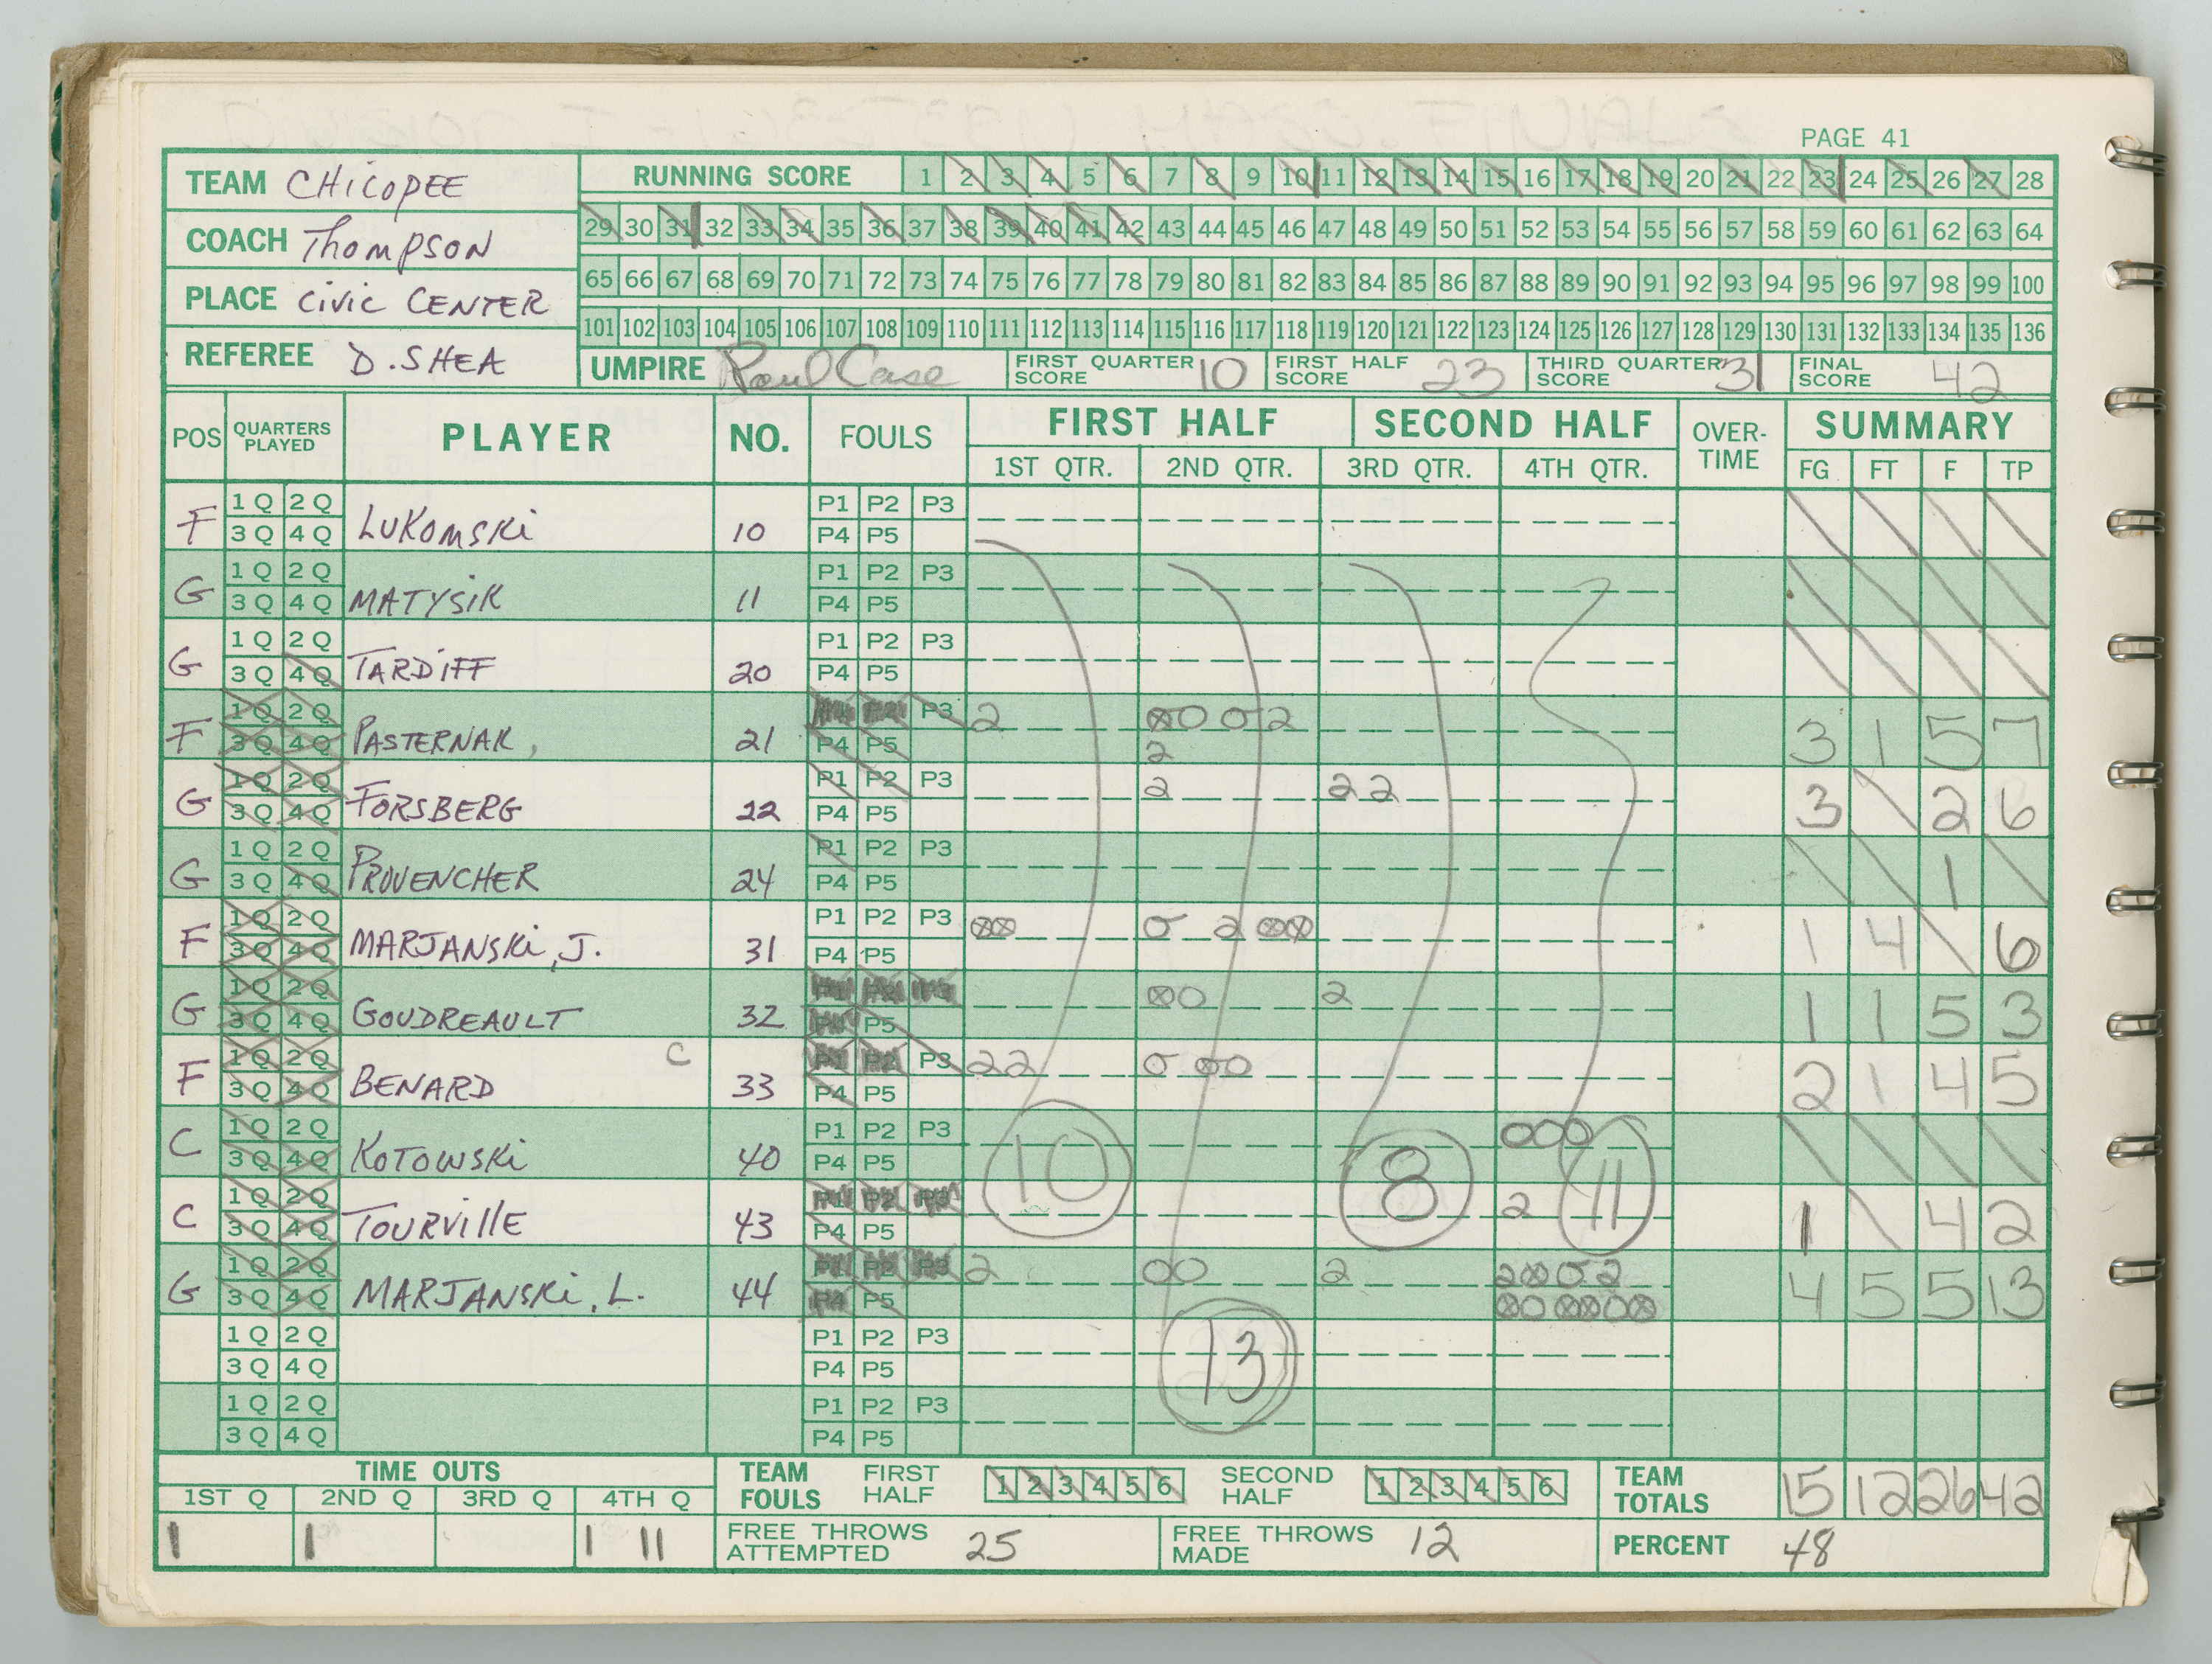 PAGE 41
TEAM CHICOPEE
COACH Thompson
PLACE CIVIC CENTER
REFEREE D. SHEA
RUNNING SCORE 1 2 3 4 5 6 7 8 9 10 11 12 13 14 15 16 17 18 19 20 21 22 23 24 25 26 27 28
29 30 31 32 33 34 35 36 37 38 39 40 41 42 43 44 45 46 47 48 49 50 51 52 53 54 55 56 57 58 59 60 61 62 63 64
65 66 67 68 69 70 71 72 73 74 75 76 77 78 79 80 81 82 83 84 85 86 87 88 89 90 91 92 93 94 95 96 97 98 99 100
101 102 103 104 105 106 107 108 109 110 111 112 113 114 115 116 117 118 119 120 121 122 123 124 125 126 127 128 129 130 131 132 133 134 135 136
UMPIRE Paul Case FIRST QUARTER SCORE 10 FIRST HALF SCORE 23 THIRD QUARTER SCORE 31 FINAL SCORE 42
POS QUARTERS PLAYED PLAYER NO. FOULS FIRST HALF SECOND HALF OVER-TIME SUMMARY
1ST QTR. 2ND QTR. 3RD QTR. 4TH QTR. FG FT F TP
F 1Q 2Q 3Q 4Q LUKOMSKI 10 P1 P2 P3 P4 P5
G 1Q 2Q 3Q 4Q MATYSIK 11 P1 P2 P3 P4 P5
G 1Q 2Q 3Q 4Q TARDIFF 20 P1 P2 P3 P4 P5
F 1Q 2Q 3Q 4Q PASTERNAK, 21 P1 P2 P3 P4 P5 2 ⊗O O 2 2 3 1 5 7
G 1Q 2Q 3Q 4Q FORSBERG 22 P1 P2 P3 P4 P5 2 2 2 3 2 6
G 1Q 2Q 3Q 4Q PROVENCHER 24 P1 P2 P3 P4 P5 1
F 1Q 2Q 3Q 4Q MARJANSKI, J. 31 P1 P2 P3 P4 P5 ⊗⊗ O 2 ⊗⊗ 1 4 6
G 1Q 2Q 3Q 4Q GOUDREAULT 32 P1 P2 P3 P4 P5 ⊗O 2 1 1 5 3
F 1Q 2Q 3Q 4Q BENARD C 33 P1 P2 P3 P4 P5 2 2 O ⊗O 2 1 4 5
C 1Q 2Q 3Q 4Q KOTOWSKI 40 P1 P2 P3 P4 P5 10 8 OOO 11
C 1Q 2Q 3Q 4Q TOURVILLE 43 P1 P2 P3 P4 P5 2 1 4 2
G 1Q 2Q 3Q 4Q MARJANSKI, L. 44 P1 P2 P3 P4 P5 2 OO 2 2⊗O2 ⊗O ⊗⊗O⊗ 4 5 5 13
1Q 2Q 3Q 4Q P1 P2 P3 P4 P5 13
1Q 2Q 3Q 4Q P1 P2 P3 P4 P5
TIME OUTS TEAM FOULS FIRST HALF 1 2 3 4 5 6 SECOND HALF 1 2 3 4 5 6 TEAM TOTALS 15 12 26 42
1ST Q 2ND Q 3RD Q 4TH Q
I I I II FREE THROWS ATTEMPTED 25 FREE THROWS MADE 12 PERCENT 48